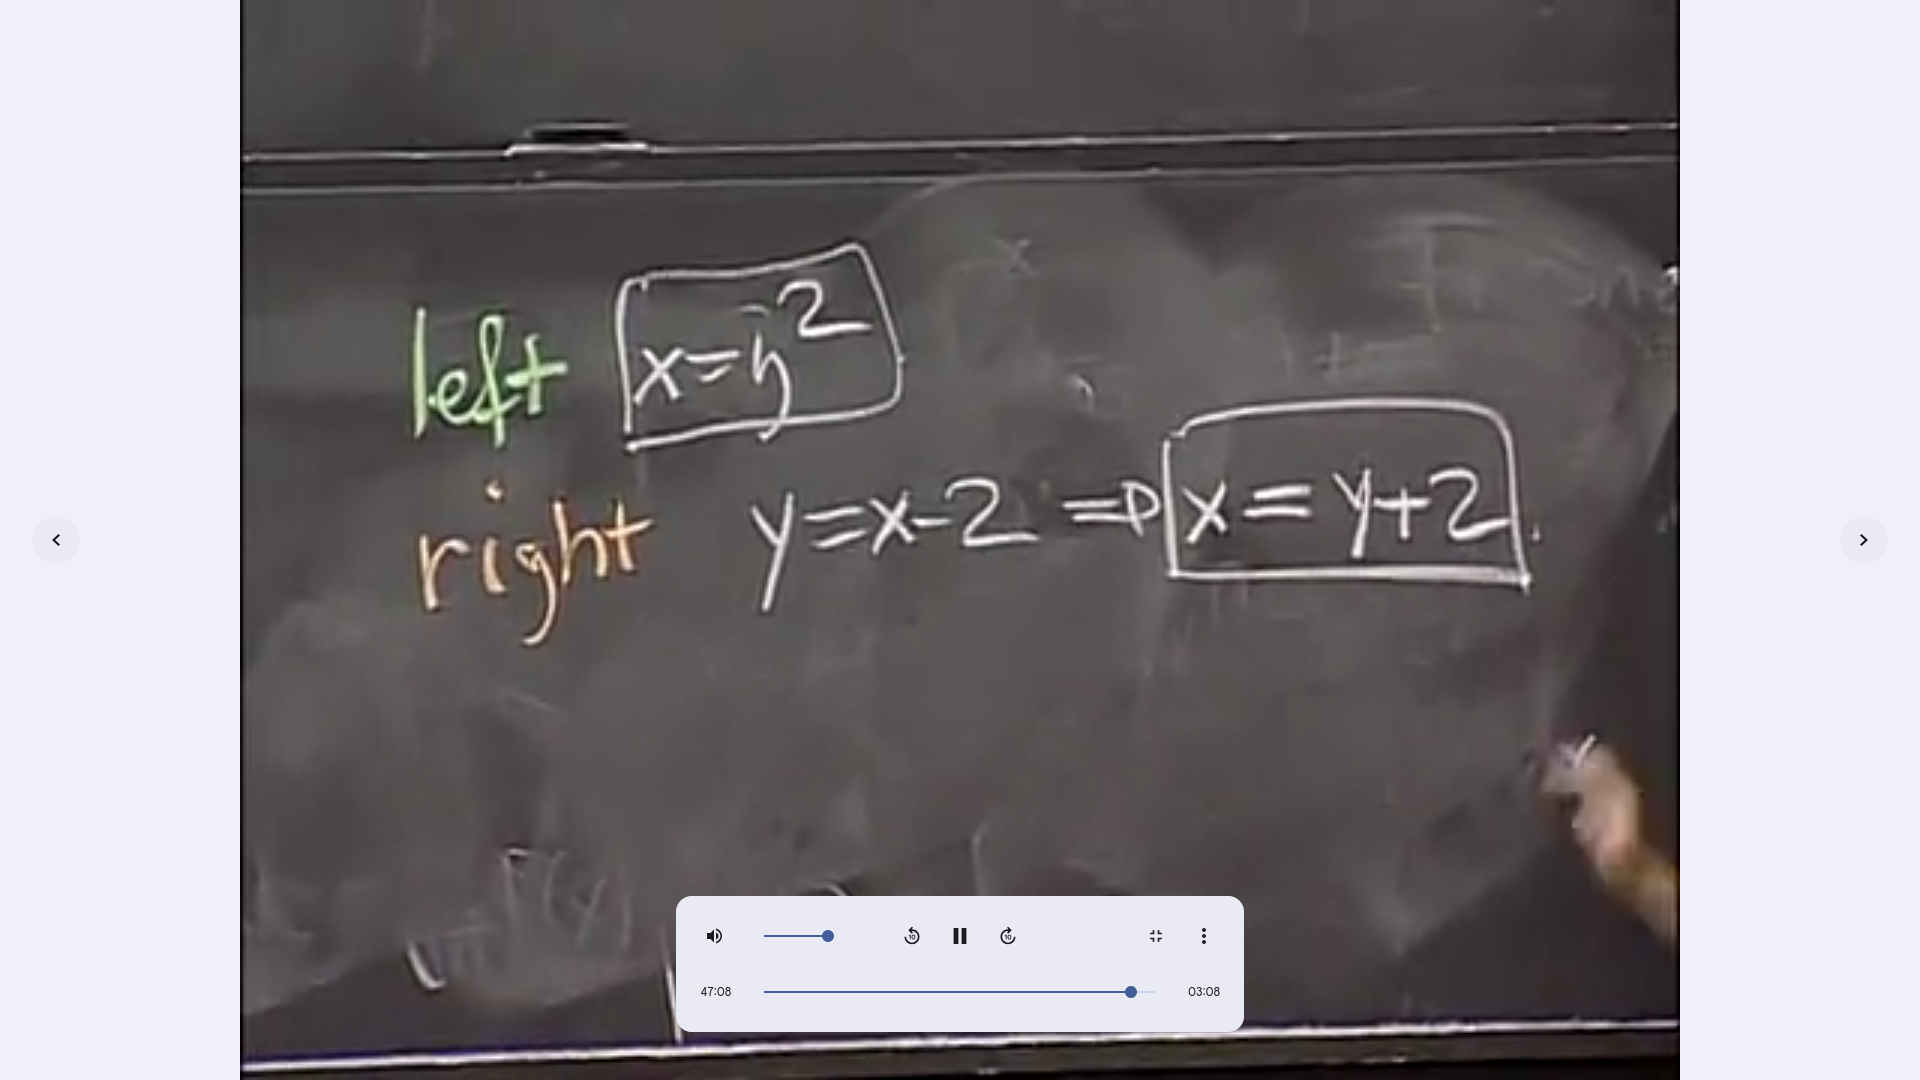 left x=y²
right y=x-2 ⇒ x = y+2.
F(y)
10 10
47:08 03:08